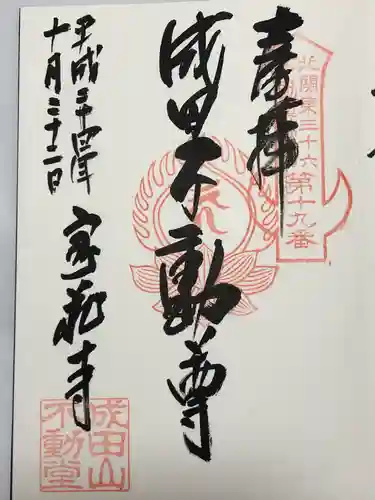 奉拝
北関東三十六
第十九番
成田不動尊
平成二十四年
十月二十二日
家祥寺
成田山
不動堂